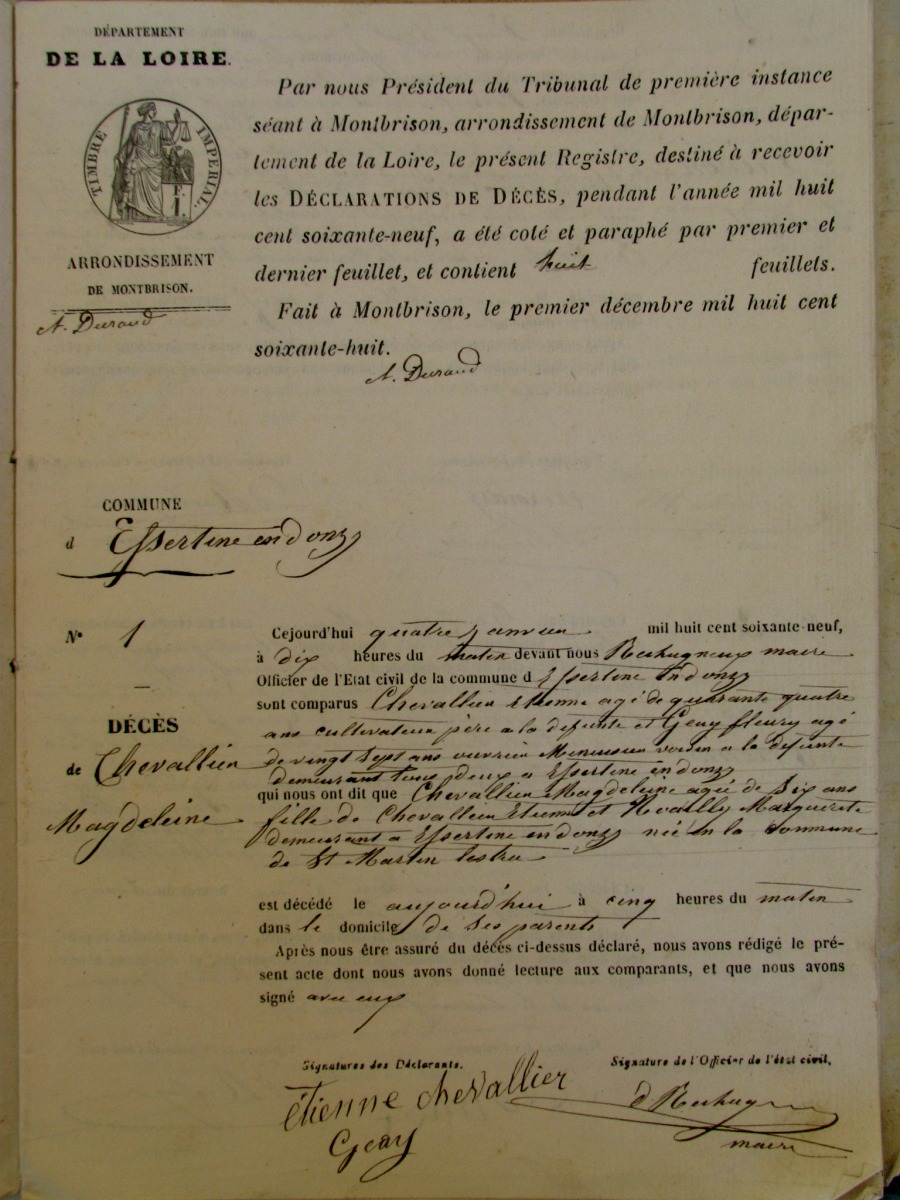 DÉPARTEMENT
DE LA LOIRE.
TIMBRE IMPERIAL.
E. I.
ARRONDISSEMENT
DE MONTBRISON.
A. Durand
Par nous Président du Tribunal de première instance
séant à Montbrison, arrondissement de Montbrison, dépar-
tement de la Loire, le présent Registre, destiné à recevoir
les DÉCLARATIONS DE DÉCÈS, pendant l'année mil huit
cent soixante-neuf, a été coté et paraphé par premier et
dernier feuillet, et contient huit feuillets.
Fait à Montbrison, le premier décembre mil huit cent
soixante-huit.
A. Durand
COMMUNE
d Essertine en donzy
N° 1
DÉCÈS
de Chevallier
Magdeleine
Cejourd'hui quatre janvier mil huit cent soixante-neuf,
à dix heures du matin devant nous maire
Officier de l'Etat civil de la commune d Essertine en donzy
sont comparus Chevallier Etienne agé de quarante quatre
ans cultivateur père a la defunte et Geay fleury agé
de vingt sept ans ouvrier Menuisier voisin a la defunte
demeurant tous deux a Essertine en donzy
qui nous ont dit que Chevallier Magdeleine agée de Six ans
fille de Chevallier Etienne et Marguerite
demeurant a Essertine en donzy née en la Commune
de St Martin lestra
est décédé le aujourd'hui à cinq heures du matin
dans le domicile de Ses parents
Après nous être assuré du décès ci-dessus déclaré, nous avons rédigé le pré-
sent acte dont nous avons donné lecture aux comparants, et que nous avons
signé avec eux
Signatures des Déclarants.
Signature de l'Officier de l'état civil,
étienne chevallier
Geay
maire